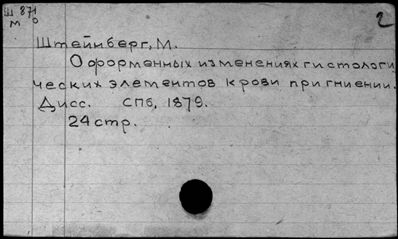 Ш 871
м 0
2
Штейнберг, М.
О форменных изменениях гистологи
ческих элементов крови при гниении.
Дисс. СПб, 1879.
24 стр.